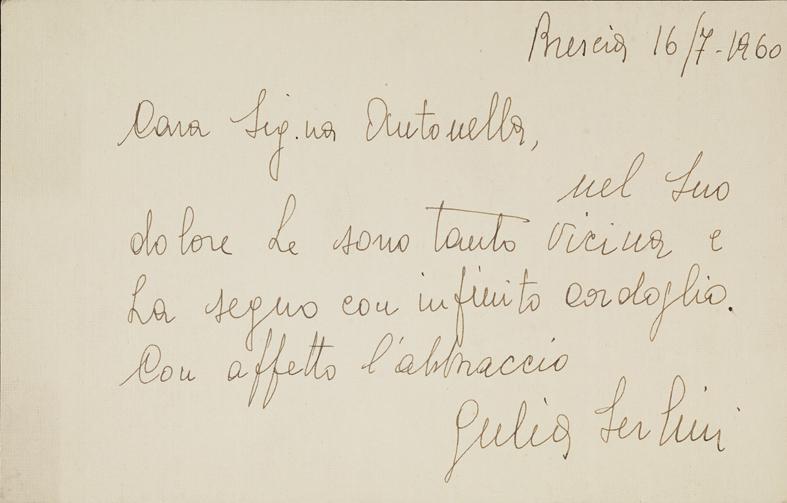 Brescia 16/7-1960
Cara Sig.na Antonella,
nel Suo
dolore Le sono tanto vicina e
La seguo con infinito cordoglio.
Con affetto l'abbraccio
Giulia